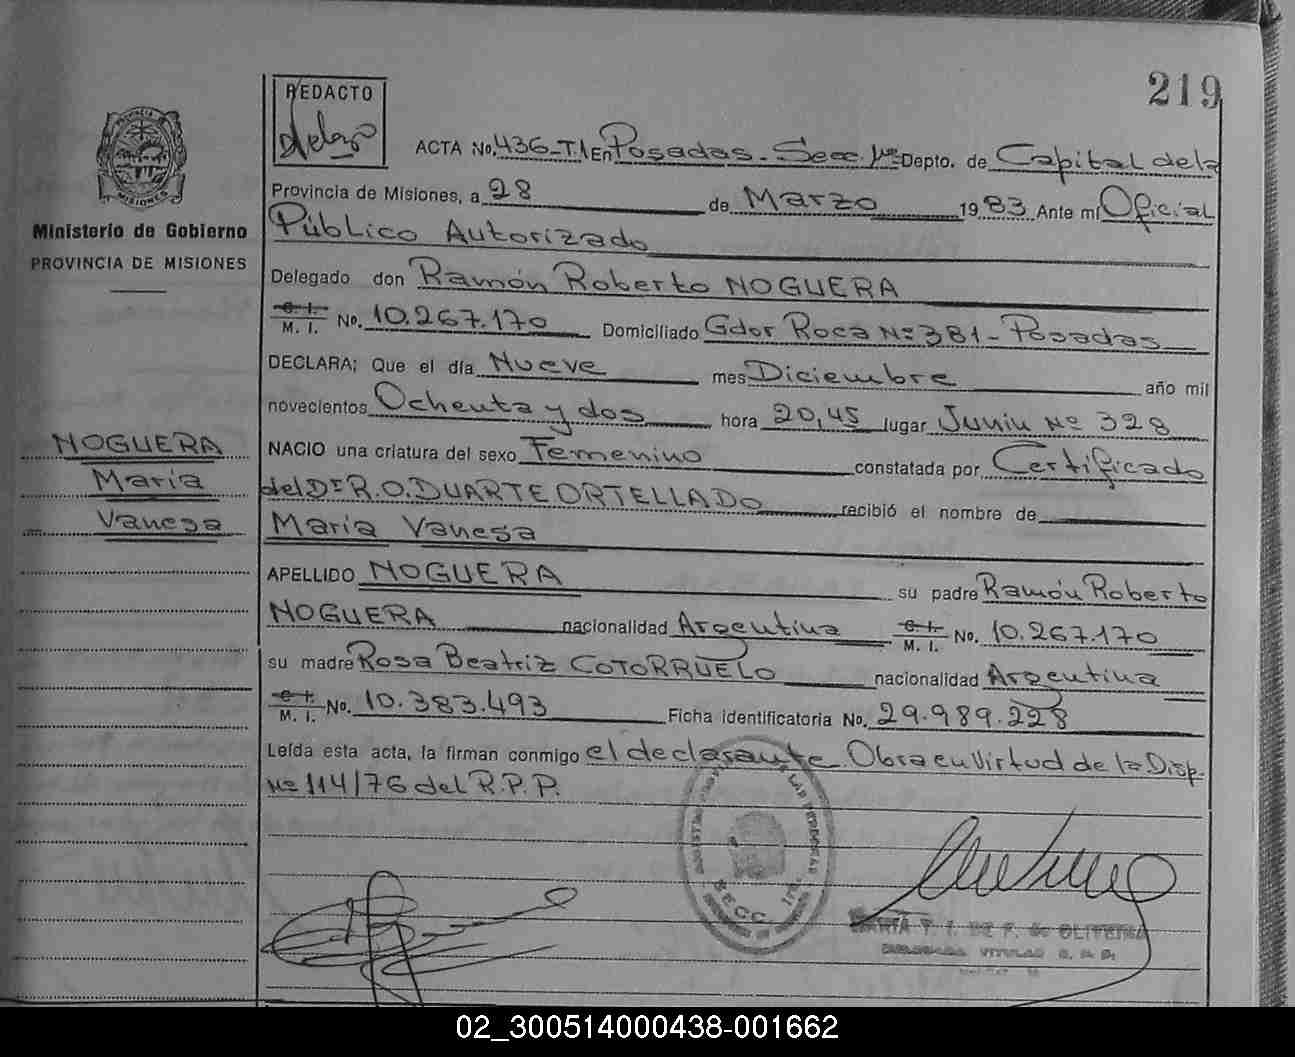 219
REDACTO
ACTA No. 436-T.1 En Posadas - Secc. 1ra Depto. de Capital de la
Provincia de Misiones, a 28 de Marzo 1983 Ante mí Oficial
Público Autorizado
Delegado don Ramón Roberto NOGUERA
C. I.
M. I. No. 10.267.170 Domiciliado Gdor Roca Nº 381 - Posadas
DECLARA; Que el día Nueve mes Diciembre año mil
novecientos Ochenta y dos hora 20,45 lugar Junin Nº 328
NACIO una criatura del sexo Femenino constatada por Certificado
del Dr R.O. DUARTE ORTELLADO recibió el nombre de
María Vanesa
APELLIDO NOGUERA su padre Ramón Roberto
NOGUERA nacionalidad Argentina C. I.
M. I. No. 10.267.170
su madre Rosa Beatriz COTORRUELO nacionalidad Argentina
C. I.
M. I. No. 10.383.493 Ficha identificatoria No. 29.989.228
Leída esta acta, la firman conmigo el declarante Obra en Virtud de la Disp.
Nº 114/76 del R.P.P.
PROVINCIA DE
MISIONES
Ministerio de Gobierno
PROVINCIA DE MISIONES
NOGUERA
María
Vanesa
DE LAS PERSONAS
SECC. 1ra.
DE OLIVEIRA
02_300514000438-001662